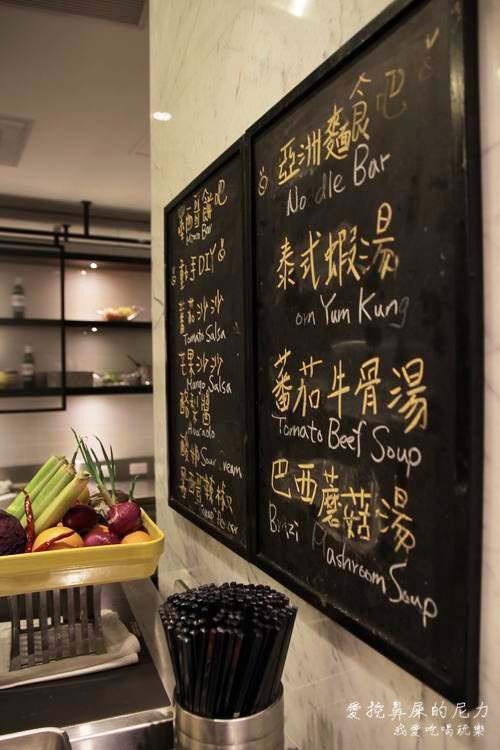 亞洲麵食吧
Noodle Bar
泰式蝦湯
om Yum Kung
蕃茄牛骨湯
Tomato Beef Soup
巴西蘑菇湯
Mashroom Soup
西哥餅吧
Bar
動手DIY
蕃茄沙沙
Tomato Salsa
芒果沙沙
Mango Salsa
酪梨醬
酸奶 Sour Cream
墨西哥辣椒
愛挖鼻屎的尼力
我愛吃喝玩樂